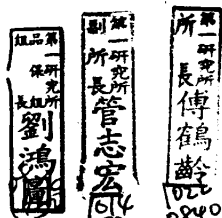 第一研究所
品保組
組長
劉鴻圖
第一研究所
副所長
管志宏
第一研究所
所長
傅鶴齡